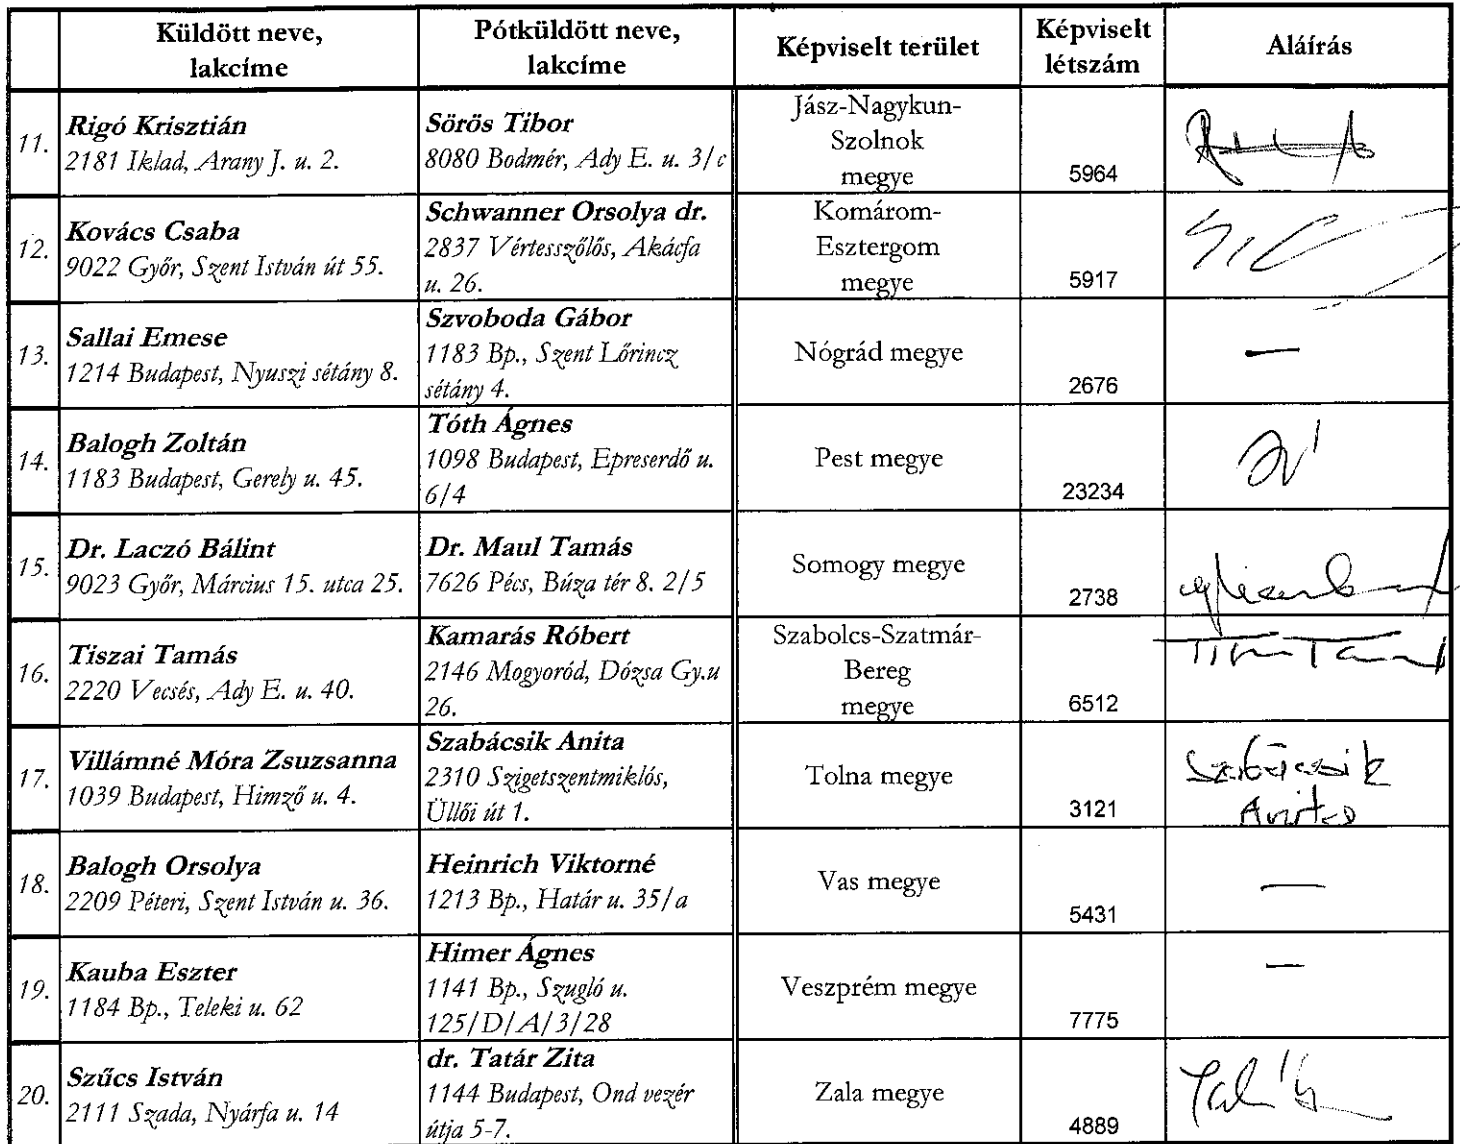 Küldött neve,
lakcíme
Pótküldött neve,
lakcíme
Képviselt terület
Képviselt
létszám
Aláírás
11.
Rigó Krisztián
2181 Iklad, Arany J. u. 2.
Sörös Tibor
8080 Bodmér, Ady E. u. 3/c
Jász-Nagykun-
Szolnok
megye
5964
12.
Kovács Csaba
9022 Győr, Szent István út 55.
Schwanner Orsolya dr.
2837 Vértesszőlős, Akácfa
u. 26.
Komárom-
Esztergom
megye
5917
13.
Sallai Emese
1214 Budapest, Nyuszi sétány 8.
Szvoboda Gábor
1183 Bp., Szent Lőrincz
sétány 4.
Nógrád megye
2676
—
14.
Balogh Zoltán
1183 Budapest, Gerely u. 45.
Tóth Ágnes
1098 Budapest, Epreserdő u.
6/4
Pest megye
23234
15.
Dr. Laczó Bálint
9023 Győr, Március 15. utca 25.
Dr. Maul Tamás
7626 Pécs, Búza tér 8. 2/5
Somogy megye
2738
16.
Tiszai Tamás
2220 Vecsés, Ady E. u. 40.
Kamarás Róbert
2146 Mogyoród, Dózsa Gy.u
26.
Szabolcs-Szatmár-
Bereg
megye
6512
17.
Villámné Móra Zsuzsanna
1039 Budapest, Himző u. 4.
Szabácsik Anita
2310 Szigetszentmiklós,
Üllői út 1.
Tolna megye
3121
Szabácsik
Anita
18.
Balogh Orsolya
2209 Péteri, Szent István u. 36.
Heinrich Viktorné
1213 Bp., Határ u. 35/a
Vas megye
5431
—
19.
Kauba Eszter
1184 Bp., Teleki u. 62
Himer Ágnes
1141 Bp., Szugló u.
125/D/A/3/28
Veszprém megye
7775
—
20.
Szűcs István
2111 Szada, Nyárfa u. 14
dr. Tatár Zita
1144 Budapest, Ond vezér
útja 5-7.
Zala megye
4889